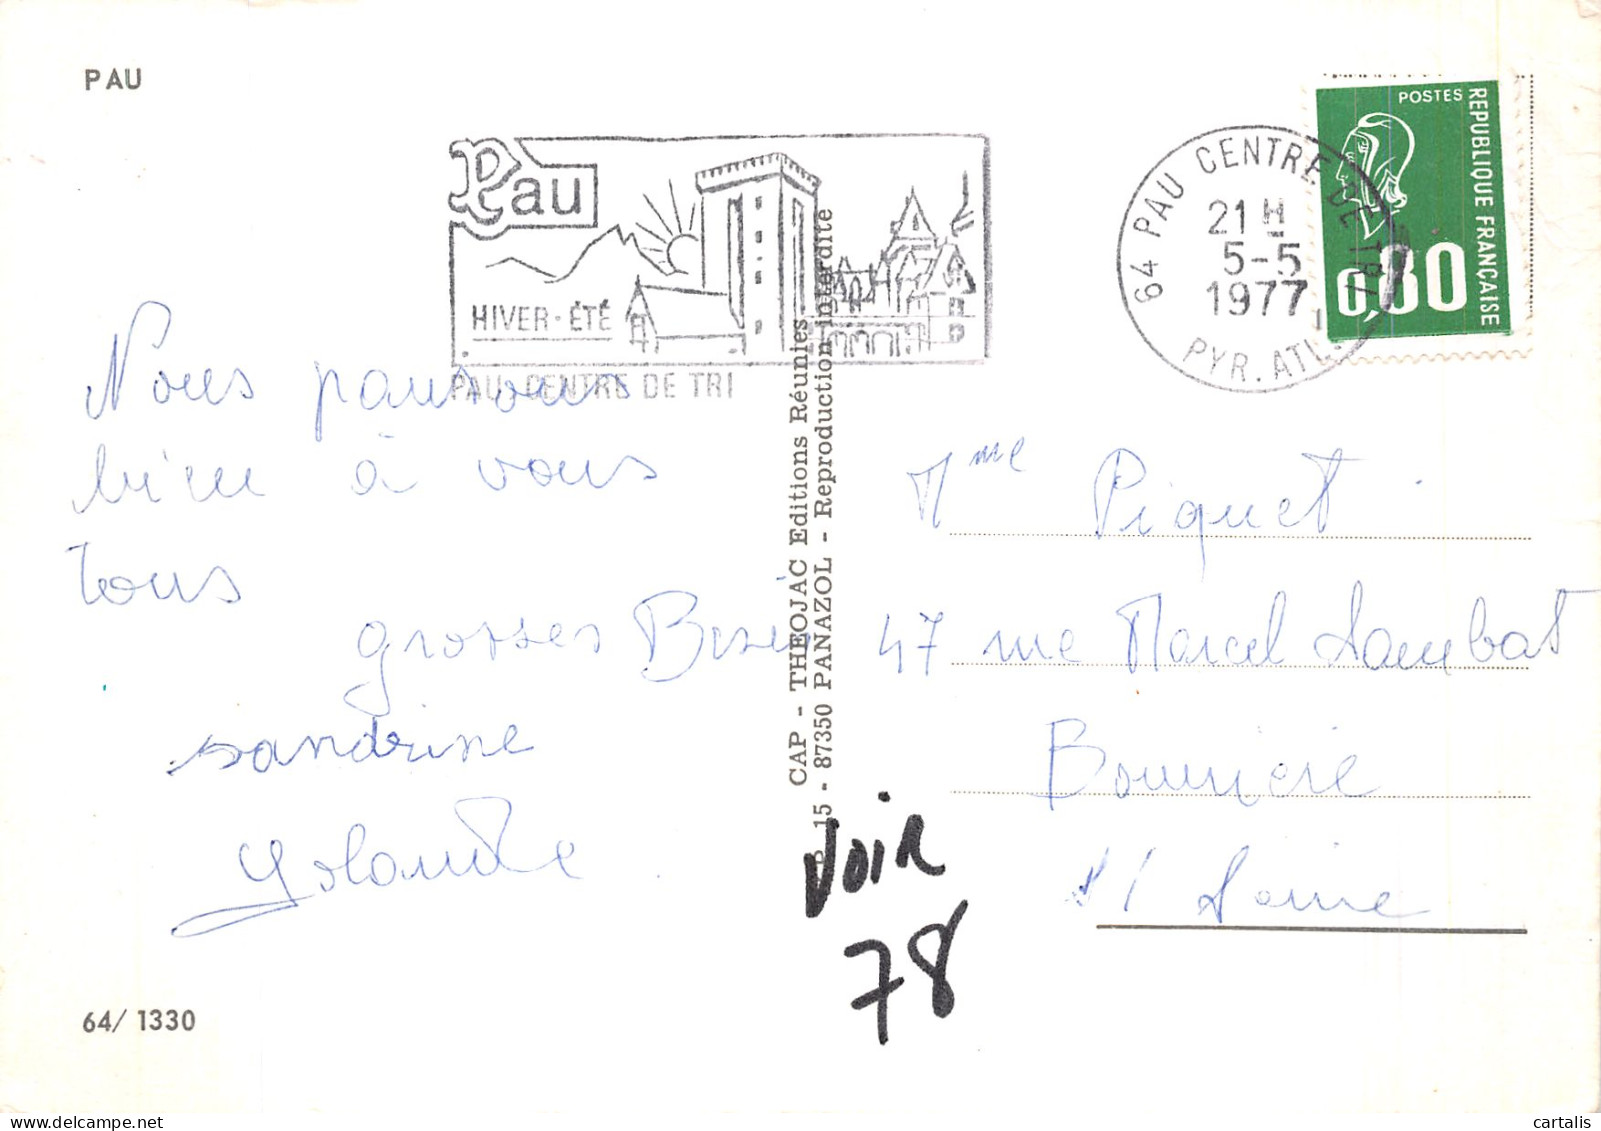 PAU
Pau
HIVER-ÉTÉ
PAU-CENTRE DE TRI
64 PAU CENTRE DE TRI
21 H
5-5
1977
PYR. ATL.
POSTES
REPUBLIQUE FRANÇAISE
0,80
Nous pensons
bien à vous
tous
grosses Bises
sandrine
Yolande
64/ 1330
CAP - THEOJAC Editions Réunies
15 - 87350 PANAZOL - Reproduction interdite
voir
78
Mme Piquet
47 rue Marcel
s/ Seine
cartalis